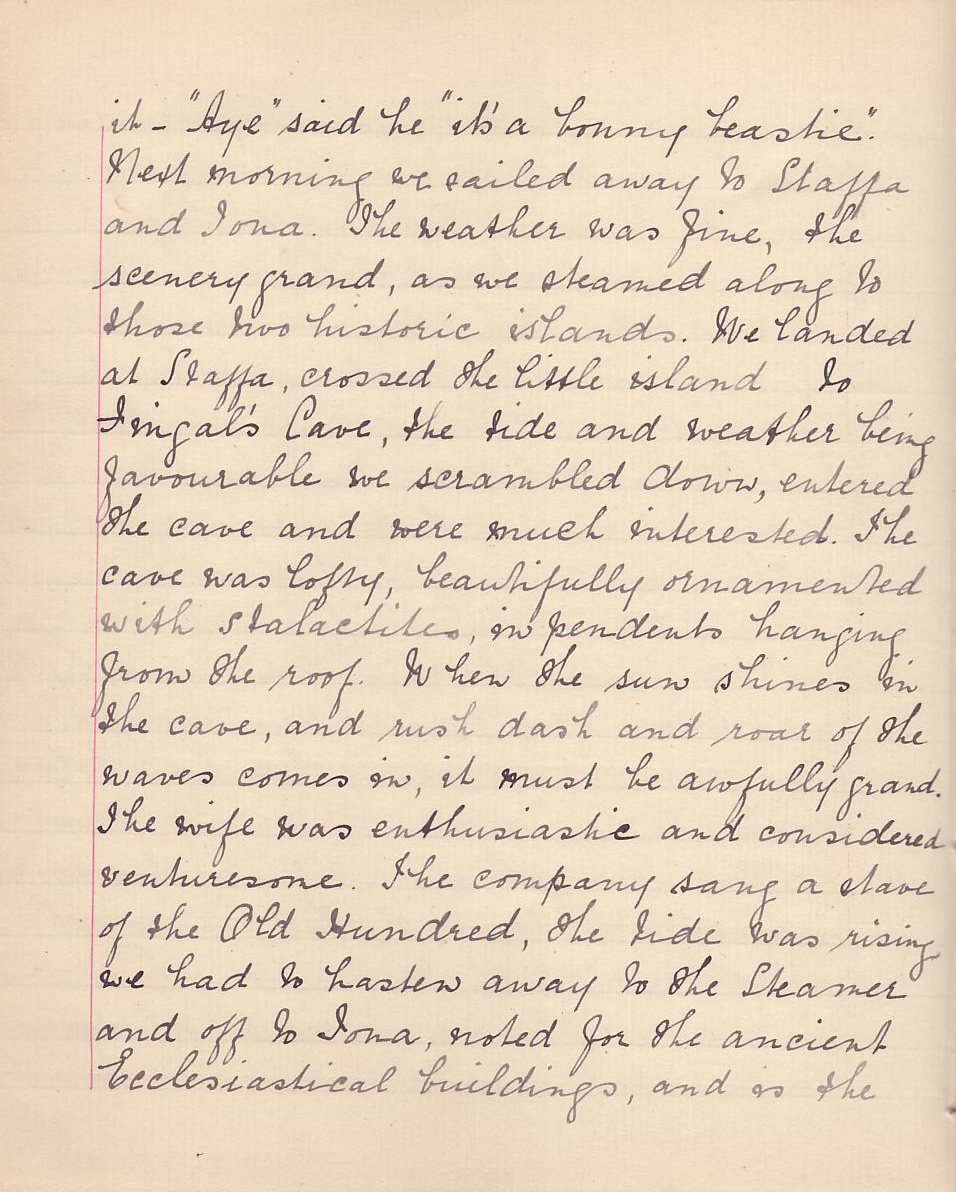 it - "Aye" said he "it's a bonny beastie".
Next morning we sailed away to Staffa
and Iona. The weather was fine, the
scenery grand, as we steamed along to
those two historic islands. We landed
at Staffa, crossed the little island to
Fingal's Cave, the tide and weather being
favourable we scrambled down, entered
the cave and were much interested. The
cave was lofty, beautifully ornamented
with stalactites, in pendents hanging
from the roof. When the sun shines in
the cave, and rush dash and roar of the
waves comes in, it must be awfully grand.
The wife was enthusiastic and considered
venturesome. The company sang a stave
of the Old Hundred, the tide was rising
we had to hasten away to the Steamer
and off to Iona, noted for the ancient
Ecclesiastical buildings, and is the